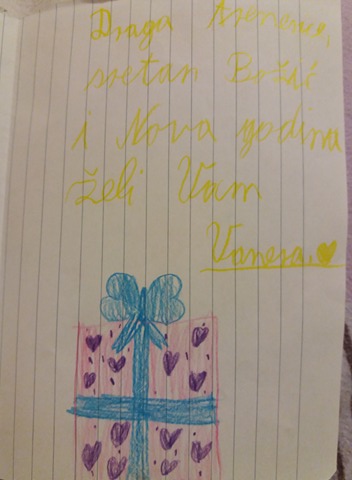 Draga
sretan Božić
i Nova godina
želi Vam
Vanesa.